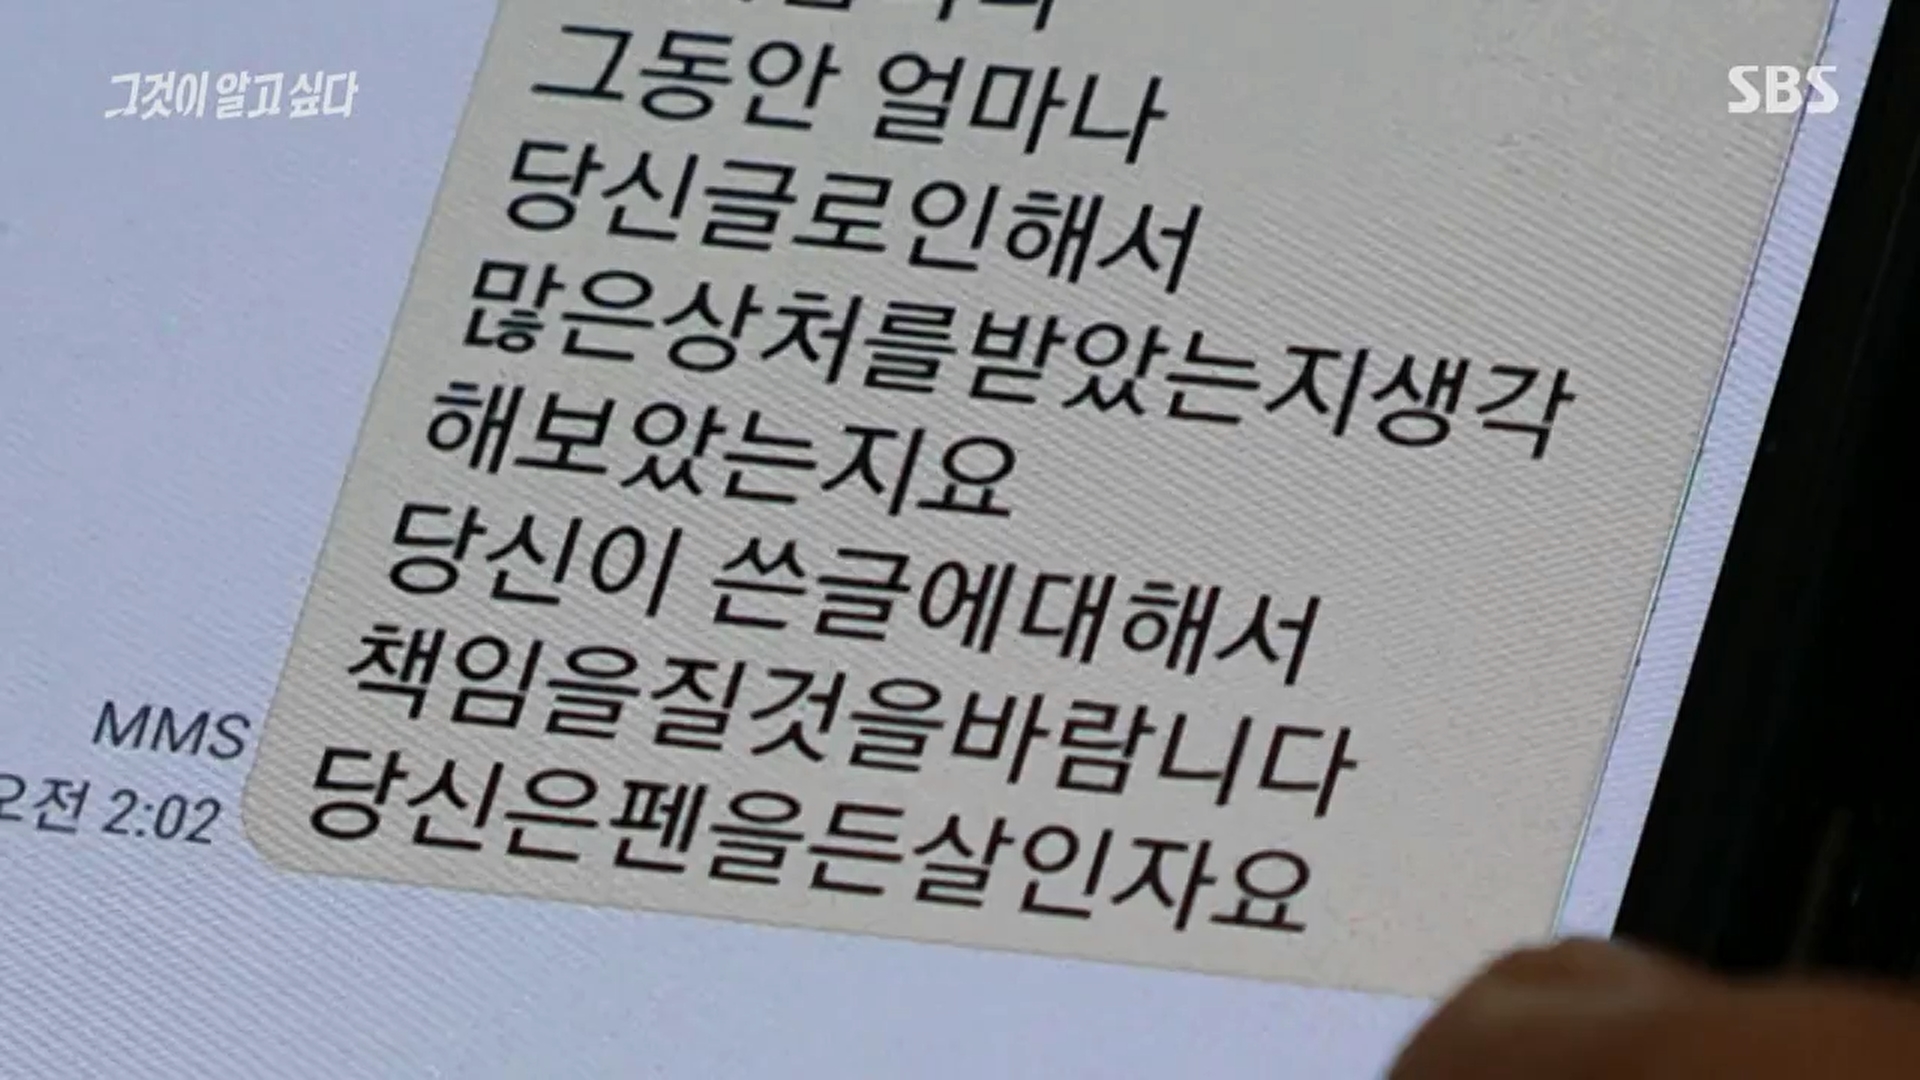 그것이 알고 싶다
SBS
그동안 얼마나
당신글로인해서
많은상처를받았는지생각
해보았는지요
당신이 쓴글에대해서
책임을질것을바람니다
당신은펜을든살인자요
MMS
오전 2:02